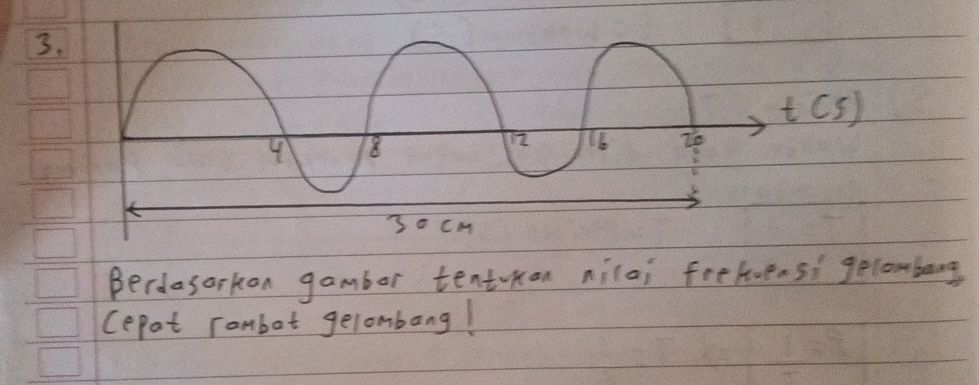 3.
t (s)
4 8 12 16 20
30 cm
Berdasarkan gambar tentukan nilai frekuensi gelombang
Cepat rambat gelombang!